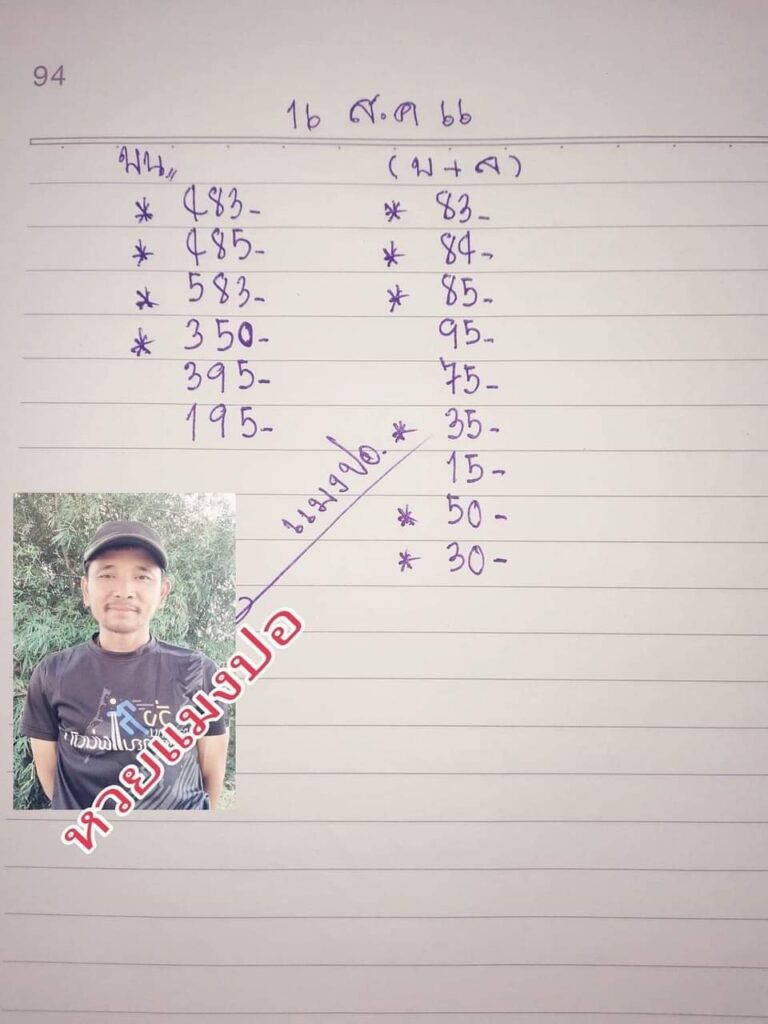 94
16 ส.ค 66
บน,,
* 483-
* 485-
* 583-
* 350-
395-
195-
(บ + ล)
* 83-
* 84-
* 85-
95-
75-
* 35-
15-
* 50-
* 30-
แมงปอ.
หวยแมงปอ